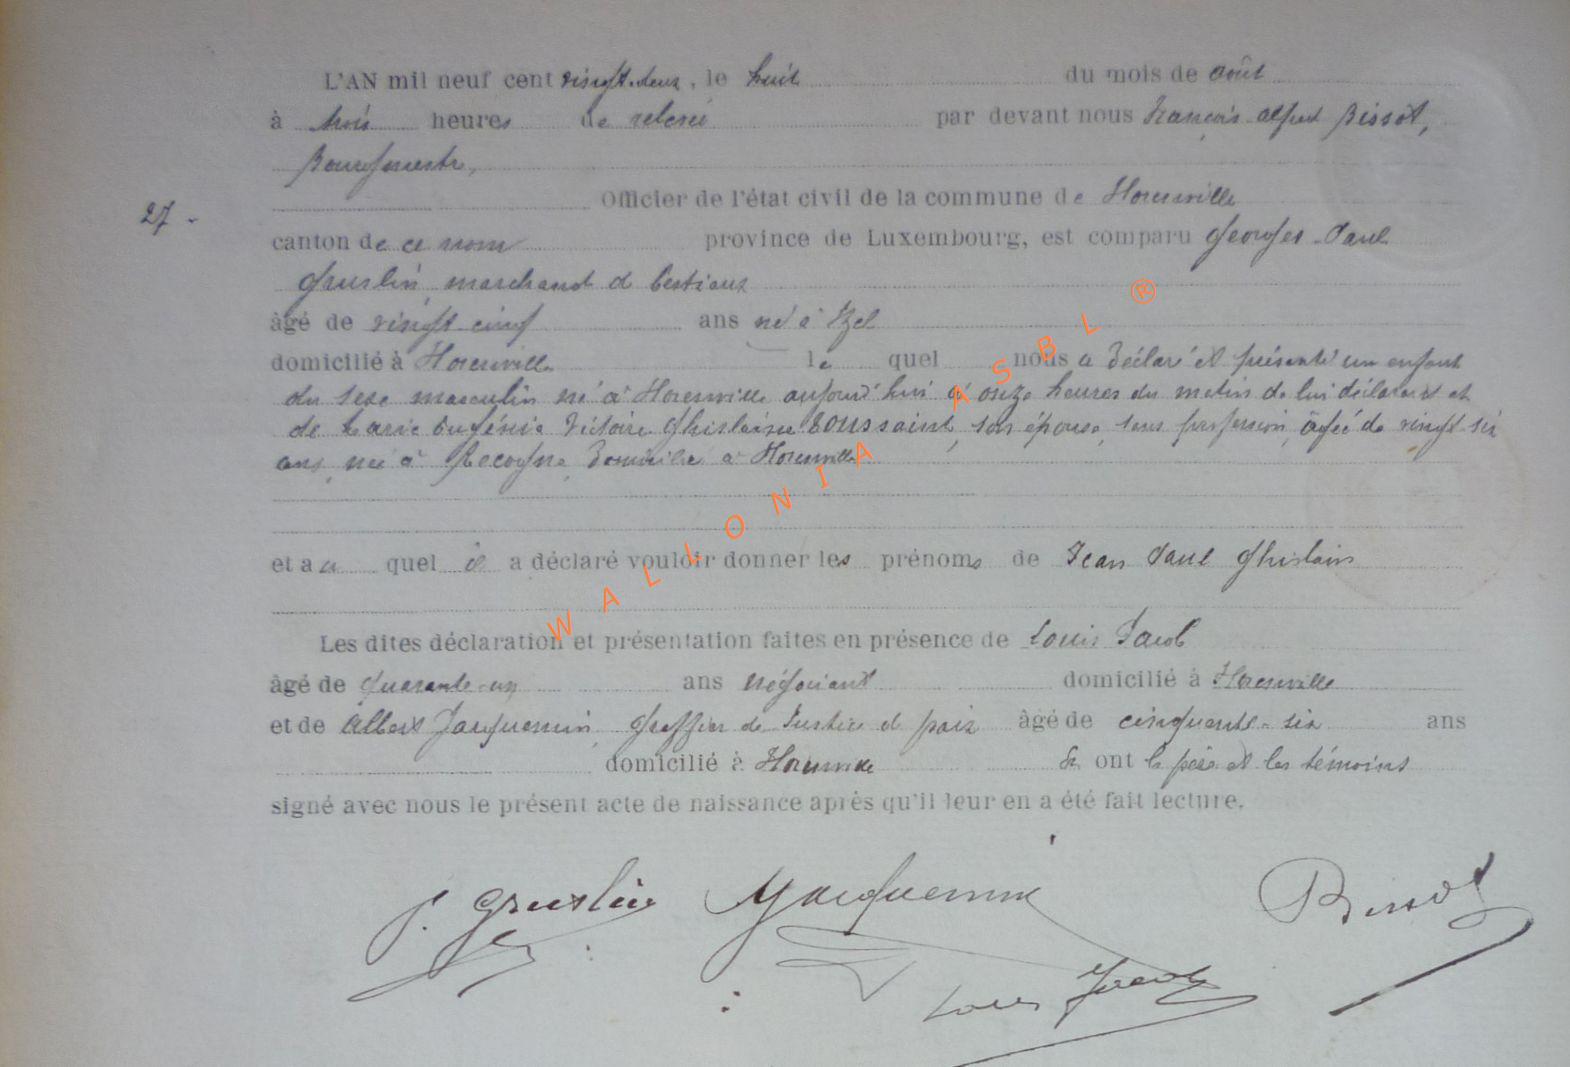 L'AN mil neuf cent vingt-deux, le huit du mois de août
à trois heures de relevée par devant nous François Alfred Bissot,
Bourgmestre,
Officier de l'état civil de la commune de Florenville
27.-
canton de ce nom province de Luxembourg, est comparu Georges-Paul
Gruslin, marchand de bestiaux
âgé de vingt-cinq ans né à Izel
domicilié à Florenville le quel nous a déclaré et présenté un enfant
du sexe masculin né à Florenville aujourd'hui à onze heures du matin de lui déclarant et
de Marie Eugénie Victoire Ghislaine Toussaint, son épouse, sans profession, âgée de vingt-six
ans, née à Recogne, domiciliée à Florenville
et au quel il a déclaré vouloir donner les prénoms de Jean Paul Ghislain
Les dites déclaration et présentation faites en présence de Louis Jacob
âgé de quarante-un ans négociant domicilié à Florenville
et de Albert Jacquemin, greffier de Justice de paix âgé de cinquante-six ans
domicilié à Florenville Et ont le père et les témoins
signé avec nous le présent acte de naissance après qu'il leur en a été fait lecture.
WALLONIA ASBL ®
P. Gruslin Jacquemin Bissot
Louis Jacob